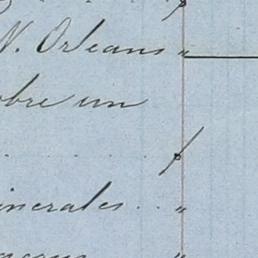 N. Orleans "
obre un
. . . . . . . . p
inerales . . "